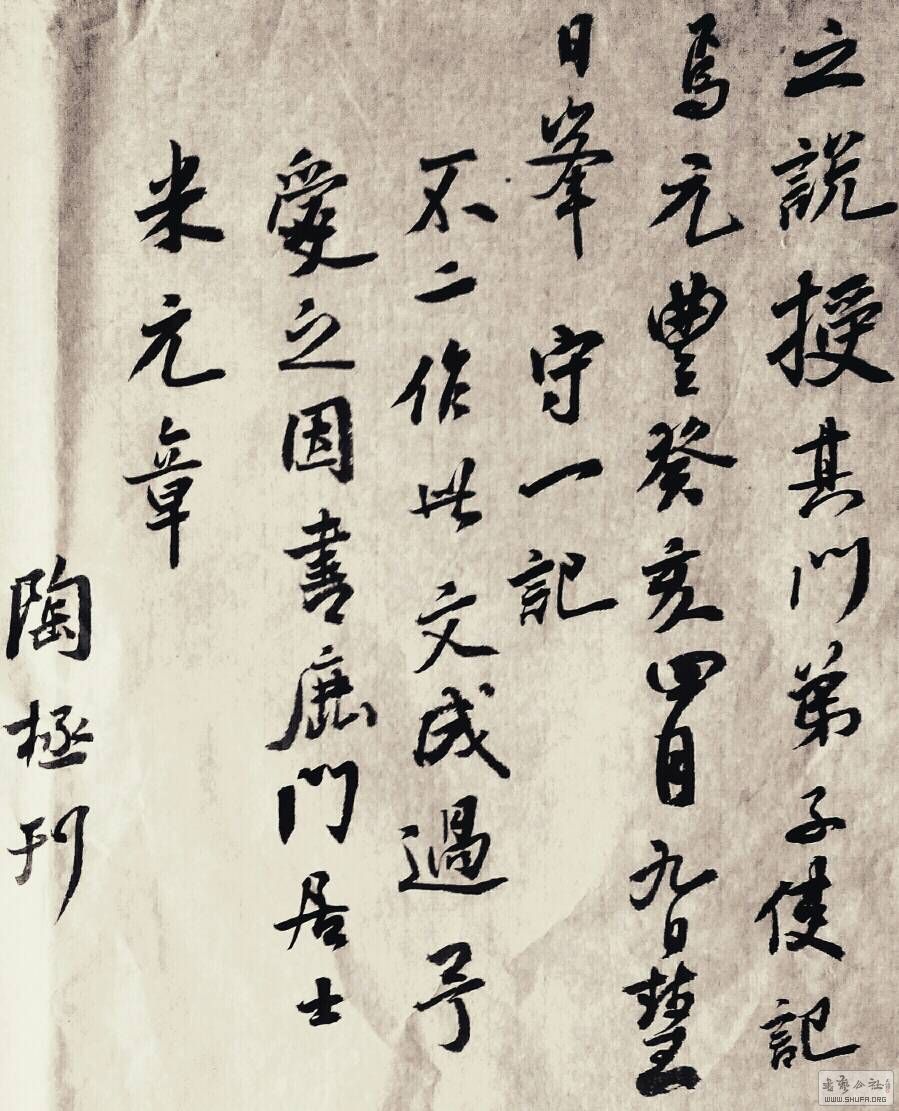 之說授其門弟子使記
焉元豐癸亥四月九日慧
日峯守一記
不二作此文成過予
愛之因書鹿門居士
米元章
陶拯刊
書藝公社
WWW.SHUFA.ORG